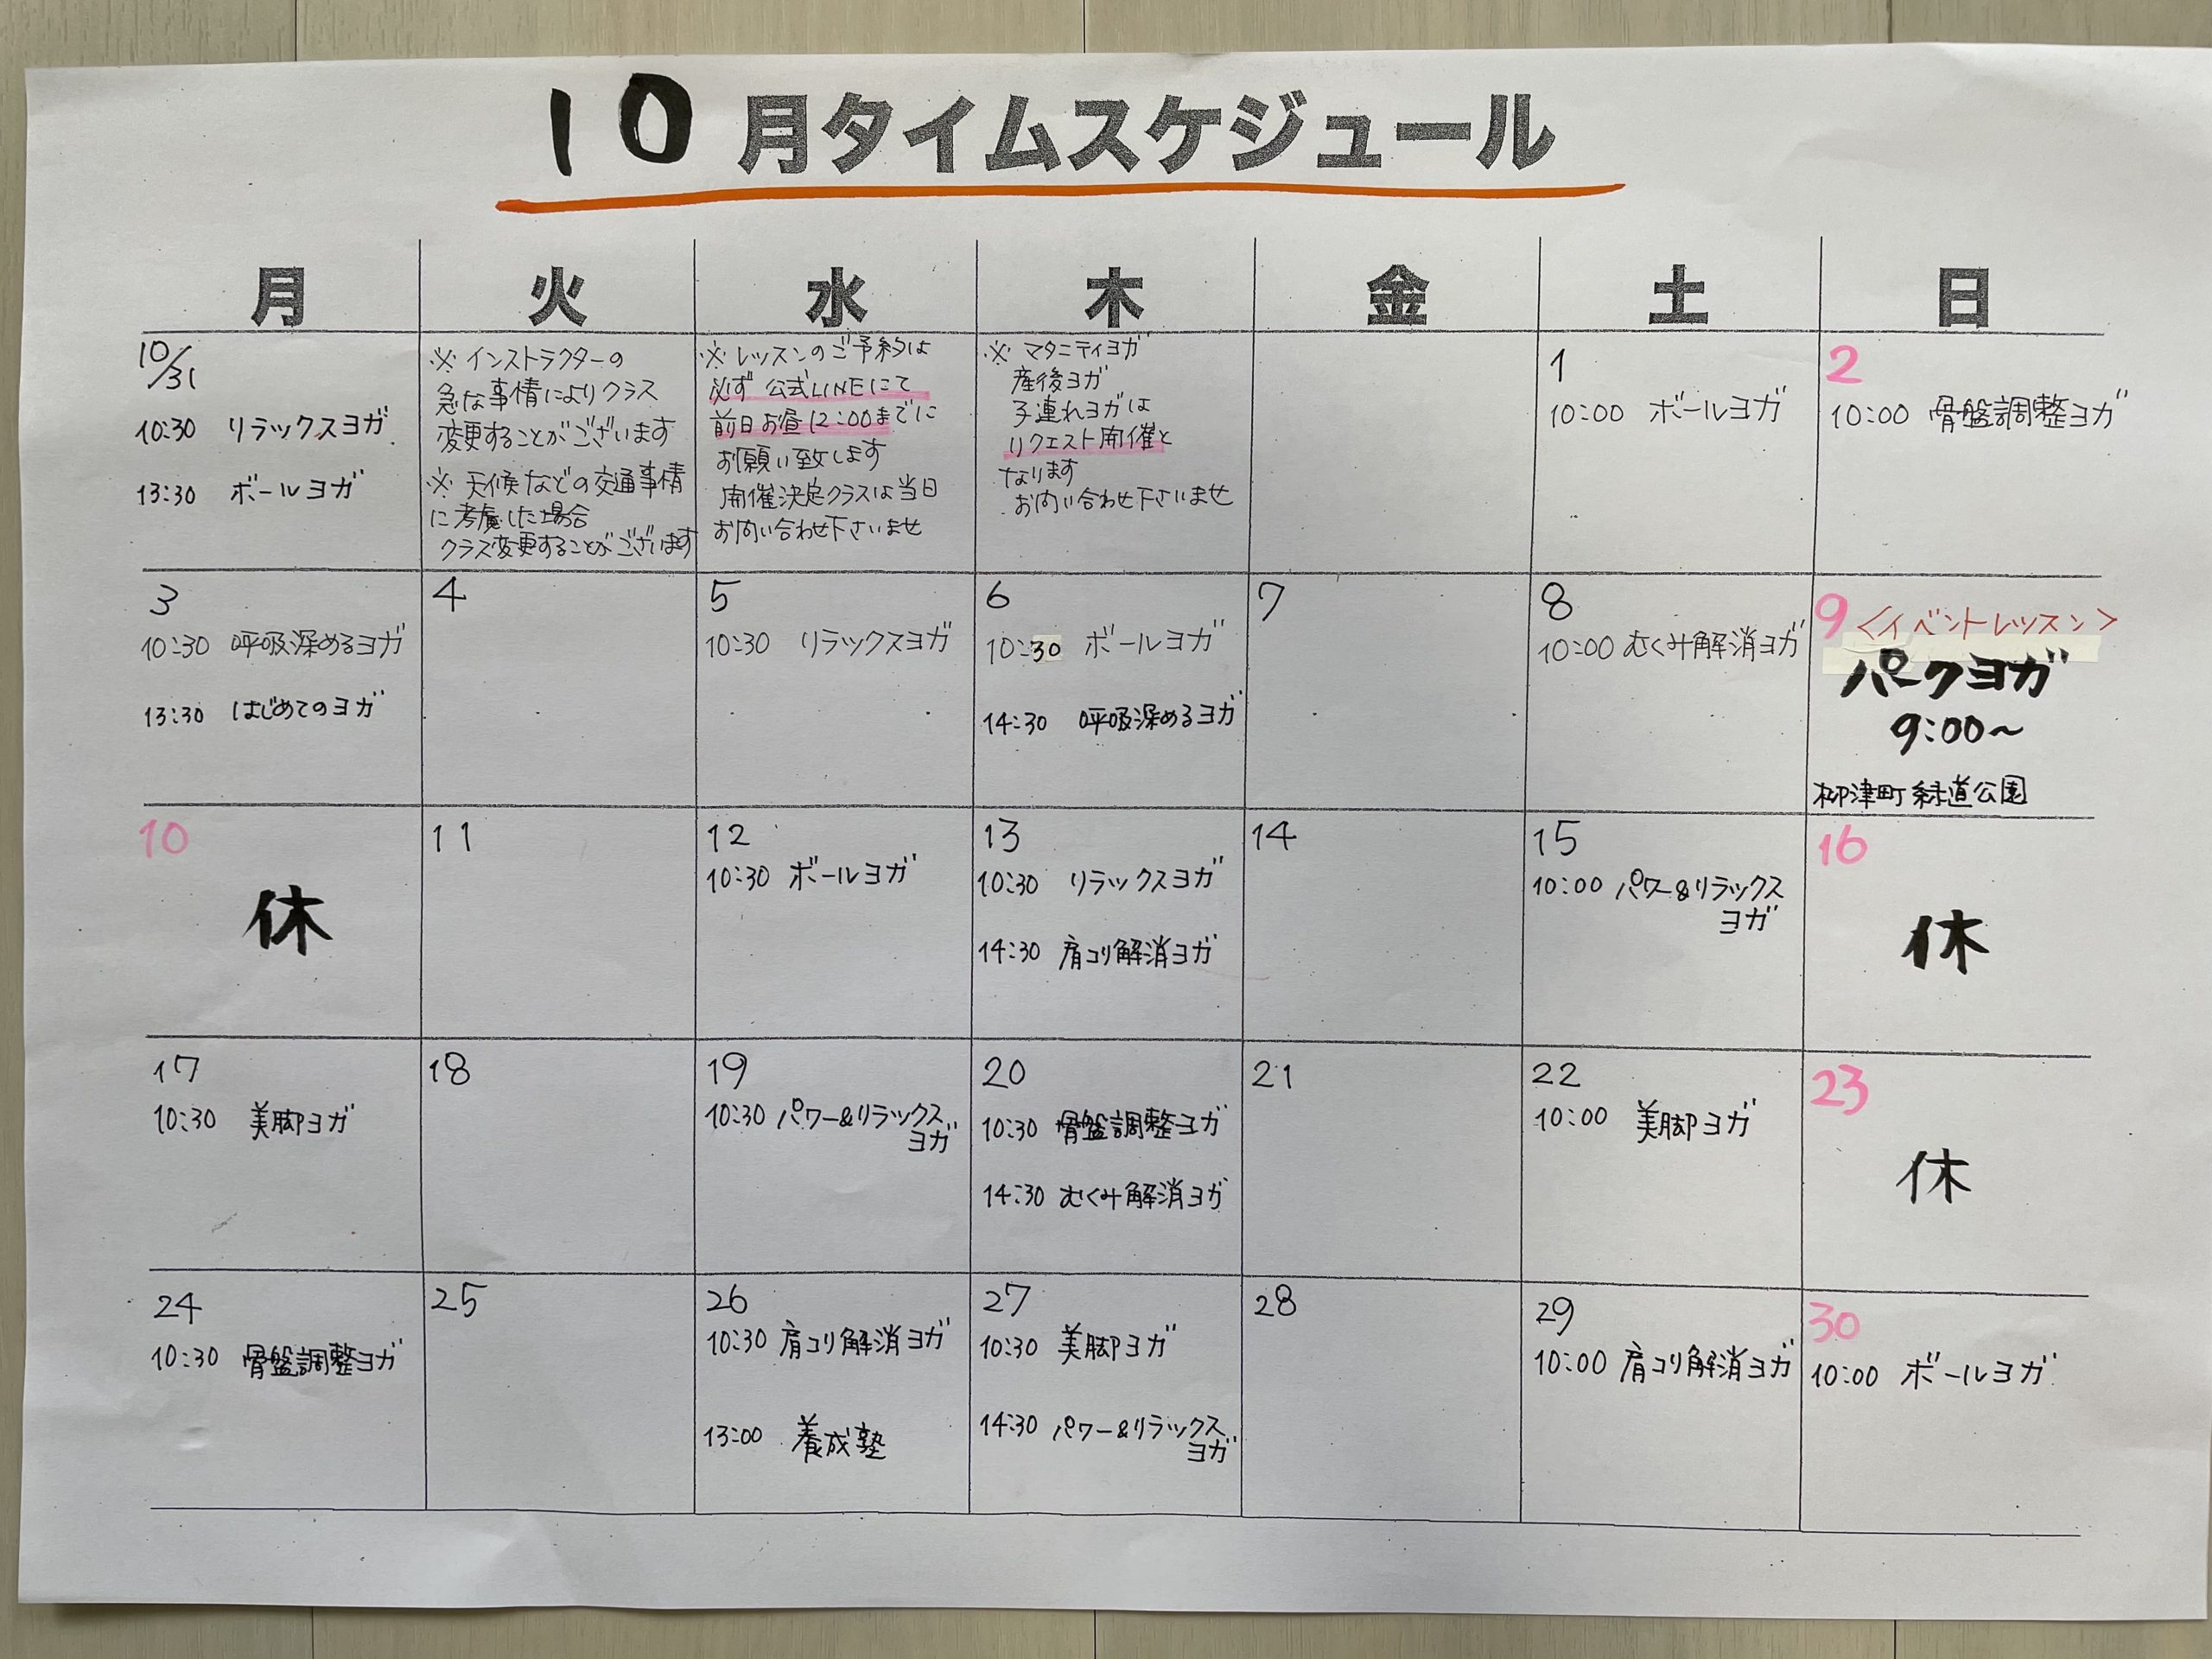 10月タイムスケジュール
月 火 水 木 金 土 日
10/31
10:30 リラックスヨガ
13:30 ボールヨガ
※ インストラクターの
急な事情によりクラス
変更することがございます
※ 天候などの交通事情
に考慮した場合
クラス変更することがございます
※ レッスンのご予約は
必ず 公式LINEにて
前日お昼12:00までに
お願い致します
開催決定クラスは当日
お問い合わせ下さいませ
※ マタニティヨガ
産後ヨガ
子連れヨガは
リクエスト開催と
なります
お問い合わせ下さいませ
1
10:00 ボールヨガ
2
10:00 骨盤調整ヨガ
3
10:30 呼吸深めるヨガ
13:30 はじめてのヨガ
4
5
10:30 リラックスヨガ
6
10:30 ボールヨガ
14:30 呼吸深めるヨガ
7
8
10:00 むくみ解消ヨガ
9 <イベントレッスン>
パークヨガ
9:00~
柳津町緑道公園
10
休
11
12
10:30 ボールヨガ
13
10:30 リラックスヨガ
14:30 肩コリ解消ヨガ
14
15
10:00 パワー&リラックス
ヨガ
16
休
17
10:30 美脚ヨガ
18
19
10:30 パワー&リラックス
ヨガ
20
10:30 骨盤調整ヨガ
14:30 むくみ解消ヨガ
21
22
10:00 美脚ヨガ
23
休
24
10:30 骨盤調整ヨガ
25
26
10:30 肩コリ解消ヨガ
13:00 養成塾
27
10:30 美脚ヨガ
14:30 パワー&リラックス
ヨガ
28
29
10:00 肩コリ解消ヨガ
30
10:00 ボールヨガ